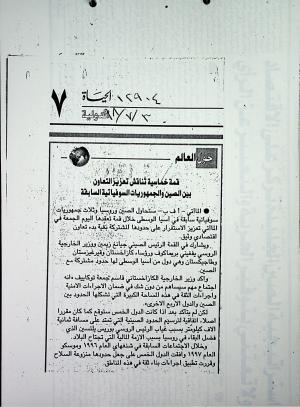 ١٢٩٠٤ الحياة
٧
٩٨/٧/٣ الدولية
حول العالم
قمة خماسية تناقش تعزيز التعاون
بين الصين والجمهوريات السوفياتية السابقة
● ألماآتي - أ ف ب - ستحاول الصين وروسيا وثلاث جمهوريات
سوفياتية سابقة في آسيا الوسطى خلال قمة تعقدها اليوم الجمعة في
ألماآتي تعزيز الاستقرار على حدودها المشتركة بغية بدء تعاون
اقتصادي وثيق.
ويشارك في القمة الرئيس الصيني جيانغ زيمين ووزير الخارجية
الروسي يفغيني بريماكوف ورؤساء كازاخستان وقيرغيزستان
وطاجيكستان وهي دول من آسيا الوسطى لها حدود مشتركة مع
الصين.
وأكد وزير الخارجية الكازاخستاني قاسم جمعة توكاييف «انه
اجتماع مهم سيساهم من دون شك في ضمان الاجراءات الامنية
واجراءات الثقة في هذه المساحة الكبيرة التي تشكلها الحدود بين
الصين والدول الأربع الأخرى».
لكن لم يتأكد بعد اذا كانت الدول الخمس ستوقع كما كان مقرراً
أصلاً، اتفاقية لترسيم الحدود الصينية التي تمتد على مسافة ثمانية
آلاف كيلومتر بسبب غياب الرئيس الروسي بوريس يلتسين الذي
فضل البقاء في روسيا بسبب الازمة المالية التي تجتاح البلاد.
وخلال الاجتماعات السابقة في شنغهاي العام ١٩٩٦ وموسكو
العام ١٩٩٧ وافقت الدول الخمس على جعل حدودها منزوعة السلاح
وقررت تطبيق اجراءات بناء ثقة في هذه المناطق.